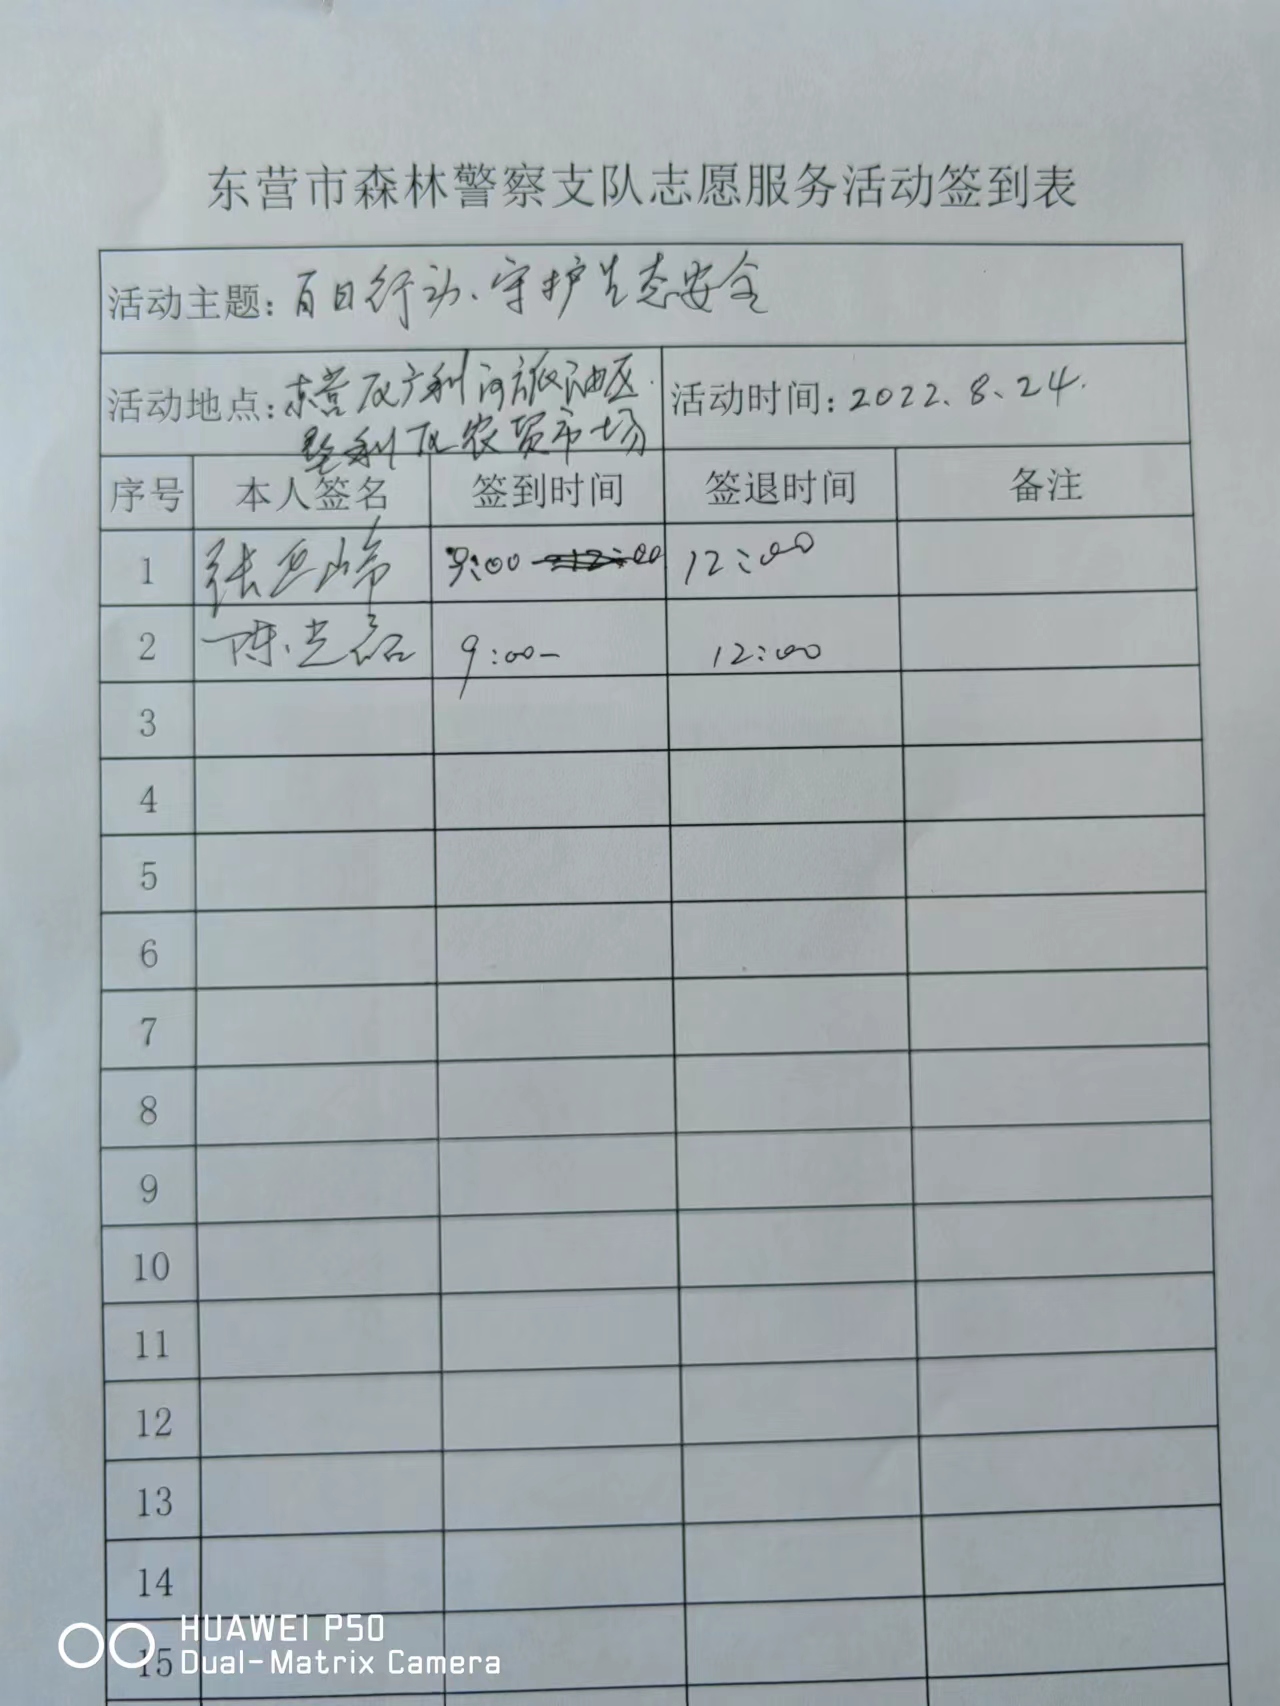 东营市森林警察支队志愿服务活动签到表
活动主题：百日行动、守护生态安全
活动地点：东营区广利河 油区 活动时间：2022.8.24.
垦利区农贸市场
序号 本人签名 签到时间 签退时间 备注
1 张 9:00 12:00
2 陈光磊 9:00- 12:00
3
4
5
6
7
8
9
10
11
12
13
14
15
HUAWEI P50
Dual-Matrix Camera